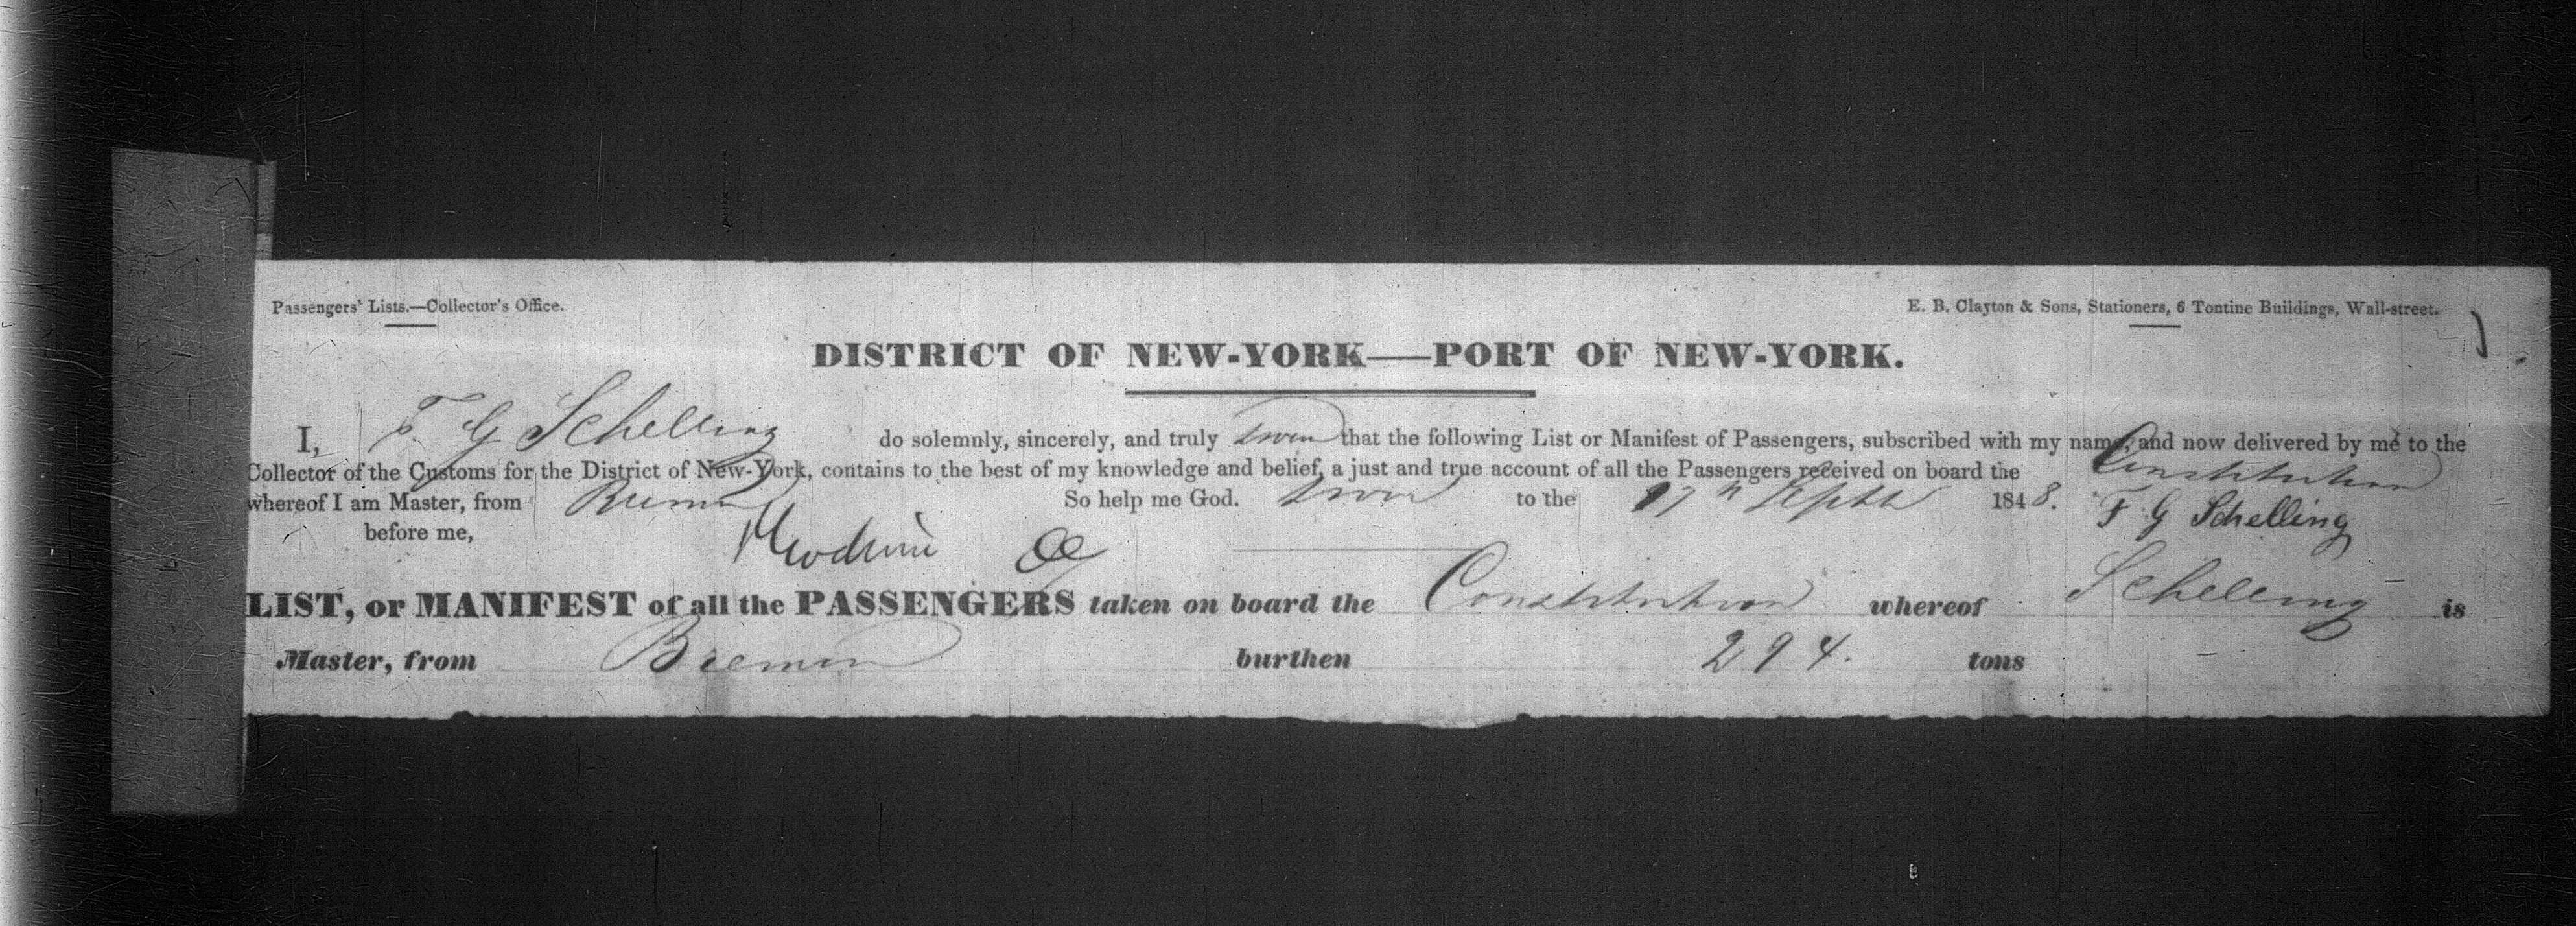 Passengers' Lists.—Collector's Office. E. B. Clayton & Sons, Stationers, 6 Tontine Buildings, Wall-street.
DISTRICT OF NEW-YORK—PORT OF NEW-YORK.
I, F G Schelling do solemnly, sincerely, and truly swear that the following List or Manifest of Passengers, subscribed with my name, and now delivered by me to the
Collector of the Customs for the District of New-York, contains to the best of my knowledge and belief, a just and true account of all the Passengers received on board the Constitution
whereof I am Master, from Bremen So help me God. Sworn to the 17th Septr 1848. F G Schelling
before me,
LIST, or MANIFEST of all the PASSENGERS taken on board the Constitution whereof Schelling is
Master, from Bremen burthen 294. tons